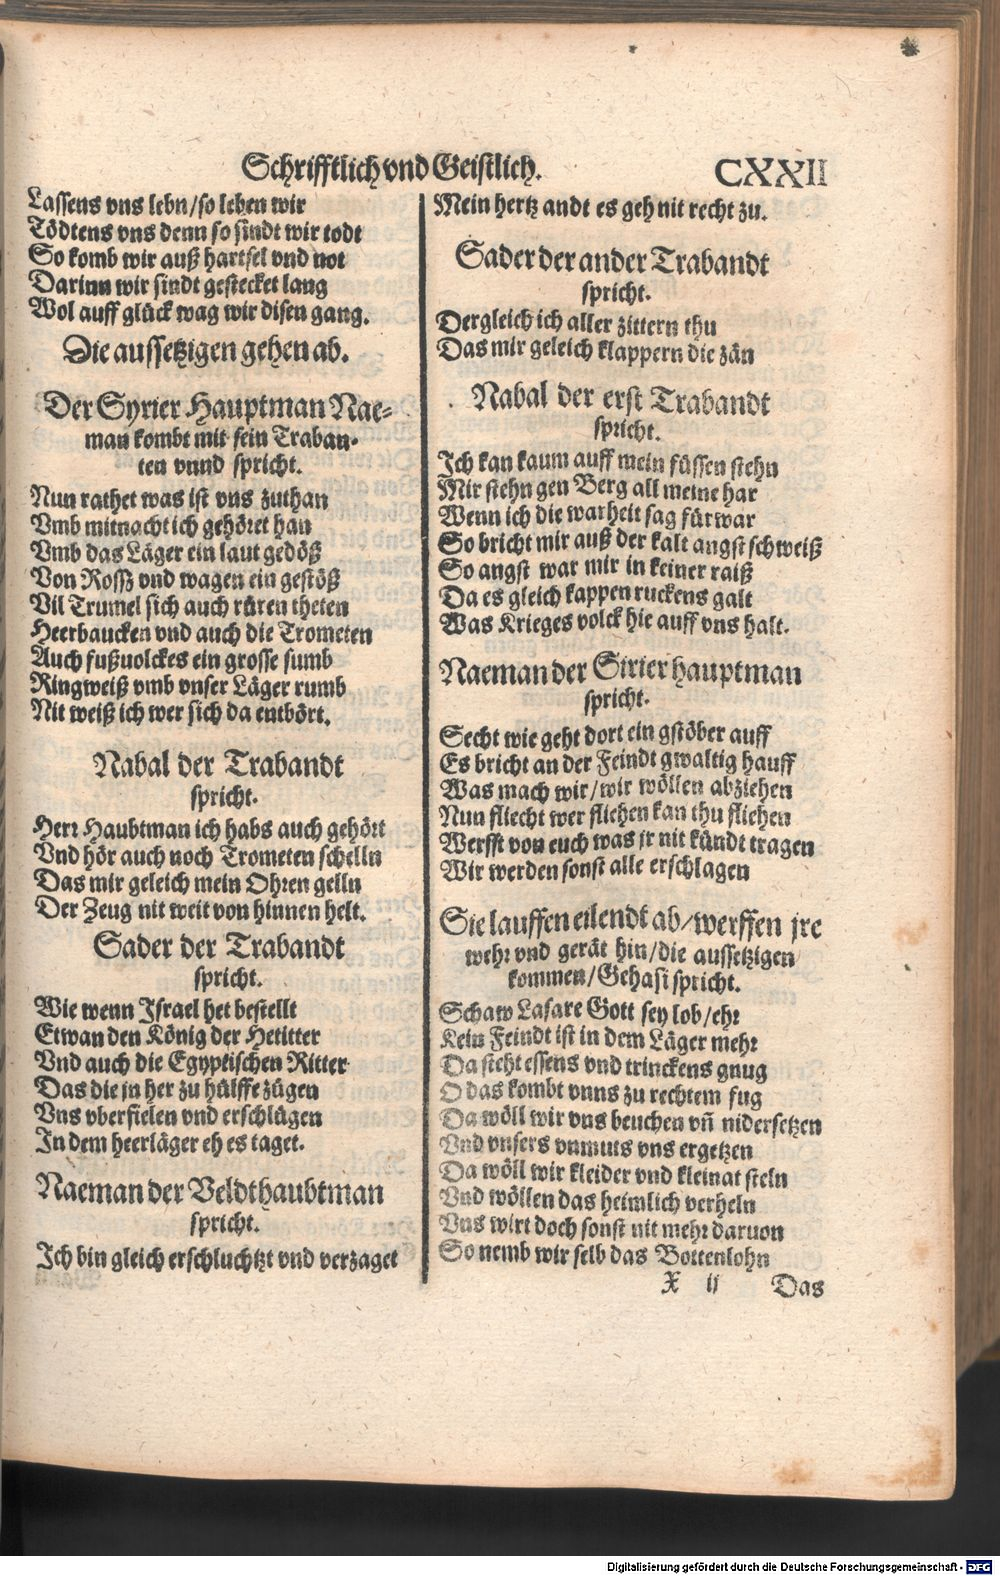 Schrifftlich vnd Geistlich. CXXII
Lassens vns lebn/so leben wir
Tödtens vns denn so sindt wir todt
So komb wir auß hartsel vnd not
Darinn wir sindt gestecket lang
Wol auff glück wag wir disen gang.
Die aussetzigen gehen ab.
Der Syrier Hauptman Nae-
man kombt mit sein Traban-
ten vnnd spricht.
Nun rathet was ist vns zuthan
Vmb mitnacht ich gehöret han
Vmb das Läger ein laut gedöß
Von Rossz vnd wagen ein gestöß
Vil Trumel sich auch rüren theten
Heerbaucken vnd auch die Trometen
Auch fußuolckes ein grosse sumb
Ringweiß vmb vnser Läger rumb
Nit weiß ich wer sich da entbört.
Nabal der Trabandt
spricht.
Herr Haubtman ich habs auch gehört
Vnd hör auch noch Trometen schelln
Das mir geleich mein Ohren gelln
Der Zeug nit weit von hinnen helt.
Sader der Trabandt
spricht.
Wie wenn Israel het bestellt
Etwan den König der Hetitter
Vnd auch die Egyptischen Ritter
Das die jn her zu hülffe zügen
Vns vberfielen vnd erschlügen
In dem heerläger eh es taget.
Naeman der Veldthaubtman
spricht.
Ich bin gleich erschluchtzt vnd verzaget
Mein hertz andt es geh nit recht zu.
Sader der ander Trabandt
spricht.
Dergleich ich aller zittern thu
Das mir geleich klappern die zän
Nabal der erst Trabandt
spricht.
Ich kan kaum auff mein füssen stehn
Mir stehn gen Berg all meine har
Wenn ich die warheit sag fürwar
So bricht mir auß der kalt angst schweiß
So angst war mir in keiner raiß
Da es gleich kappen ruckens galt
Was Krieges volck hie auff vns halt.
Naeman der Sirier hauptman
spricht.
Secht wie geht dort ein gstöber auff
Es bricht an der Feindt gwaltig hauff
Was mach wir/wir wöllen abziehen
Nun fliecht wer fliehen kan thu fliehen
Werfft von euch was jr nit kündt tragen
Wir werden sonst alle erschlagen
Sie lauffen eilendt ab/werffen jre
wehr vnd gerät hin/die aussetzigen
kommen/Gehasi spricht.
Schaw Lasare Gott sey lob/ehr
Kein Feindt ist in dem Läger mehr
Da steht essens vnd trinckens gnug
O das kombt vnns zu rechtem fug
Da wöll wir vns beuchen vñ nidersetzen
Vnd vnsers vnmuts vns ergetzen
Da wöll wir kleider vnd kleinat steln
Vnd wöllen das heimlich verheln
Vns wirt doch sonst nit mehr daruon
So nemb wir selb das Bottenlohn
X ij Das
Digitalisierung gefördert durch die Deutsche Forschungsgemeinschaft - DFG